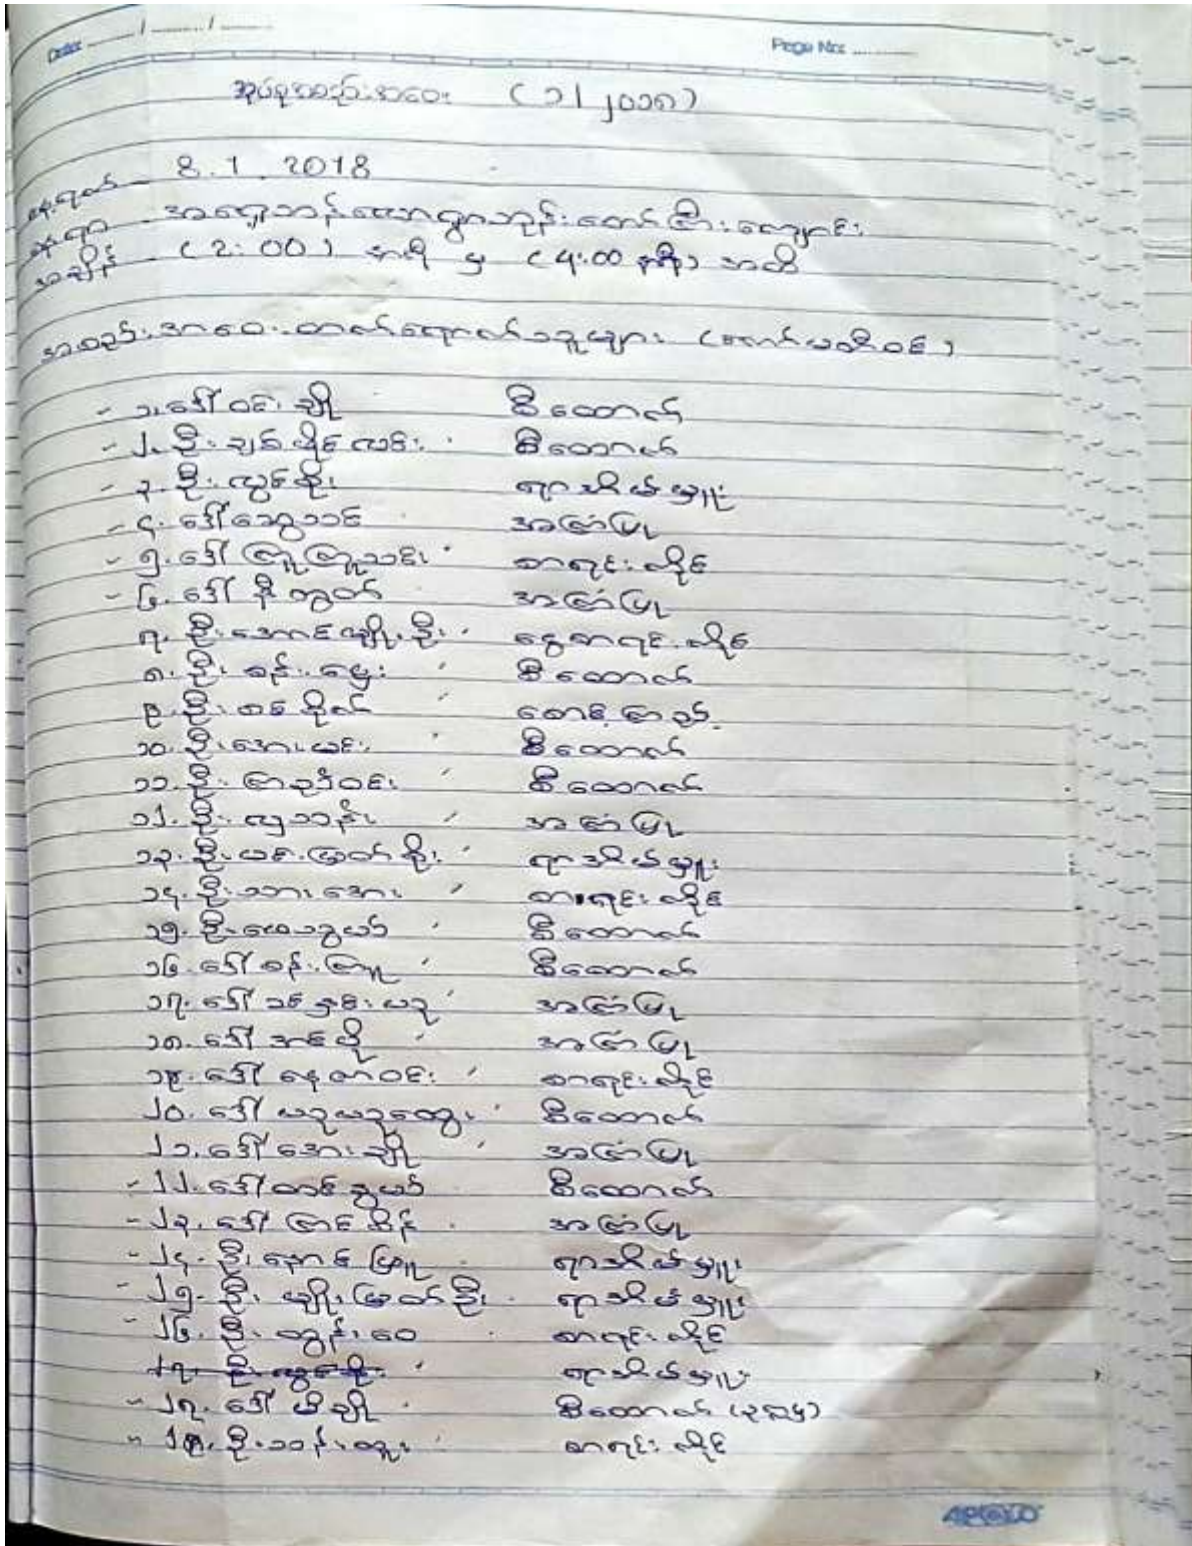 Date ......../........./.........
Page No: ............
အုပ်စုအစည်းအဝေး (၁/၂၀၁၈)
နေ့ရက် - 8.1.2018
နေရာ - ဘုန်းတော်ကြီးကျောင်း
အချိန် - (2:00) နာရီ မှ (4:00 နာရီ) အထိ
အစည်းအဝေးတက်ရောက်သူများ (ကော်မတီဝင်)
- ၁. ဒေါ်ဝင်းချို စီထောက်
- ၂. ဦးချစ်ရှိန်လင်း စီထောက်
- ၃. ဦးလွင်စိုး ရာအိမ်မှူး
- ၄. ဒေါ်ဆွေသင် အကြံပြု
- ၅. ဒေါ်ကြူကြူသင်း စာရင်းကိုင်
- ၆. ဒေါ်နီထွတ် အကြံပြု
၇. ဦးအောင်မျိုးဦး ငွေစာရင်းကိုင်
၈. ဦးစန်းမြှေး စီထောက်
၉. ဦးတင်စိုက် စောင့်ကြည့်
၁၀. ဦးအေးမင်း စီထောက်
၁၁. ဦးကြည်ဝင်း စီထောက်
၁၂. ဦးလှသန်း အကြံပြု
၁၃. ဦးမင်းမြတ်စိုး ရာအိမ်မှူး
၁၄. ဦးသားအေး စာရင်းကိုင်
၁၅. ဦးထေသွယ် စီထောက်
၁၆. ဒေါ်စန်းကြူ စီထောက်
၁၇. ဒေါ်သင်နှင်းယု အကြံပြု
၁၈. ဒေါ်အင်ပို အကြံပြု
၁၉. ဒေါ်နေဇာဝင်း စာရင်းကိုင်
၂၀. ဒေါ်ယုယုထွေး စီထောက်
၂၁. ဒေါ်အေးချို အကြံပြု
- ၂၂. ဒေါ်တင်နွယ် စီထောက်
- ၂၃. ဒေါ်ကြင်စိန် အကြံပြု
- ၂၄. ဦးနောင်ဖြူ ရာအိမ်မှူး
- ၂၅. ဦးမျိုးမြတ်ဦး ရာအိမ်မှူး
- ၂၆. ဦးထွန်းဝေ စာရင်းကိုင်
၂၇. ဦးလွင်စိုး ရာအိမ်မှူး
- ၂၇. ဒေါ်မီချို စီထောက်
- ၂၈. ဦးသန်းထူး စာရင်းကိုင်
APOLLO